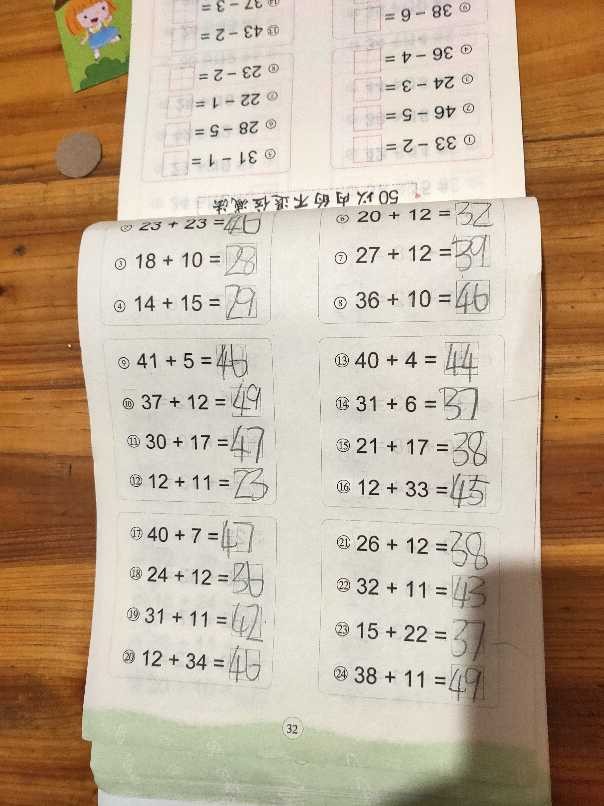 ⑨ 38 − 6 =
④ 36 − 4 =
③ 24 − 3 =
② 46 − 5 =
① 33 − 2 =
37 − 3 =
43 − 2 =
⑧ 23 − 2 =
⑦ 22 − 1 =
⑥ 28 − 5 =
⑤ 31 − 1 =
50以内的不退位减法
② 23 + 23 = 46
③ 18 + 10 = 28
④ 14 + 15 = 29
⑥ 20 + 12 = 32
⑦ 27 + 12 = 39
⑧ 36 + 10 = 46
⑨ 41 + 5 = 46
⑩ 37 + 12 = 49
⑪ 30 + 17 = 47
⑫ 12 + 11 = 23
⑬ 40 + 4 = 44
⑭ 31 + 6 = 37
⑮ 21 + 17 = 38
⑯ 12 + 33 = 45
⑰ 40 + 7 = 47
⑱ 24 + 12 = 36
⑲ 31 + 11 = 42
⑳ 12 + 34 = 46
㉑ 26 + 12 = 38
㉒ 32 + 11 = 43
㉓ 15 + 22 = 37
㉔ 38 + 11 = 49
32